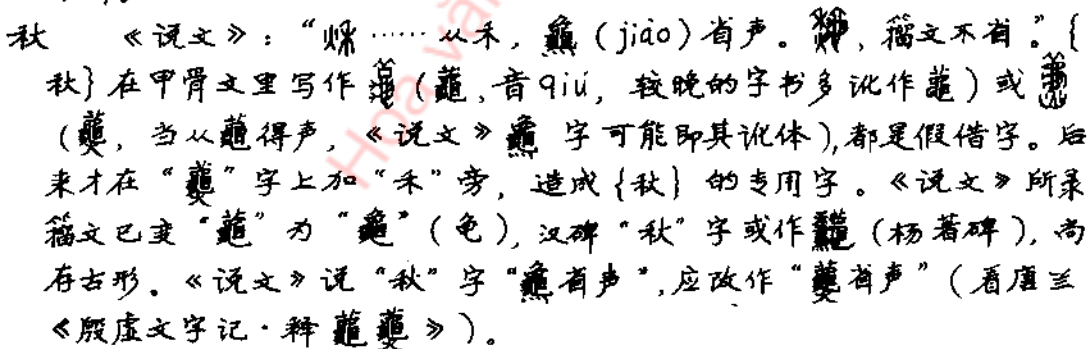 秋 《说文》:“𥤚……从禾,(jiāo)省声。,籀文不省。”{
秋}在甲骨文里写作(,音qiū,较晚的字书多讹作)或
(,当从得声,《说文》字可能即其讹体),都是假借字。后
来才在“”字上加“禾”旁,造成{秋}的专用字。《说文》所录
籀文已变“”为“”(龟),汉碑“秋”字或作(杨著碑),尚
存古形。《说文》说“秋”字“省声”,应改作“省声”(看唐兰
《殷虚文字记·释》)。
Hoa văn